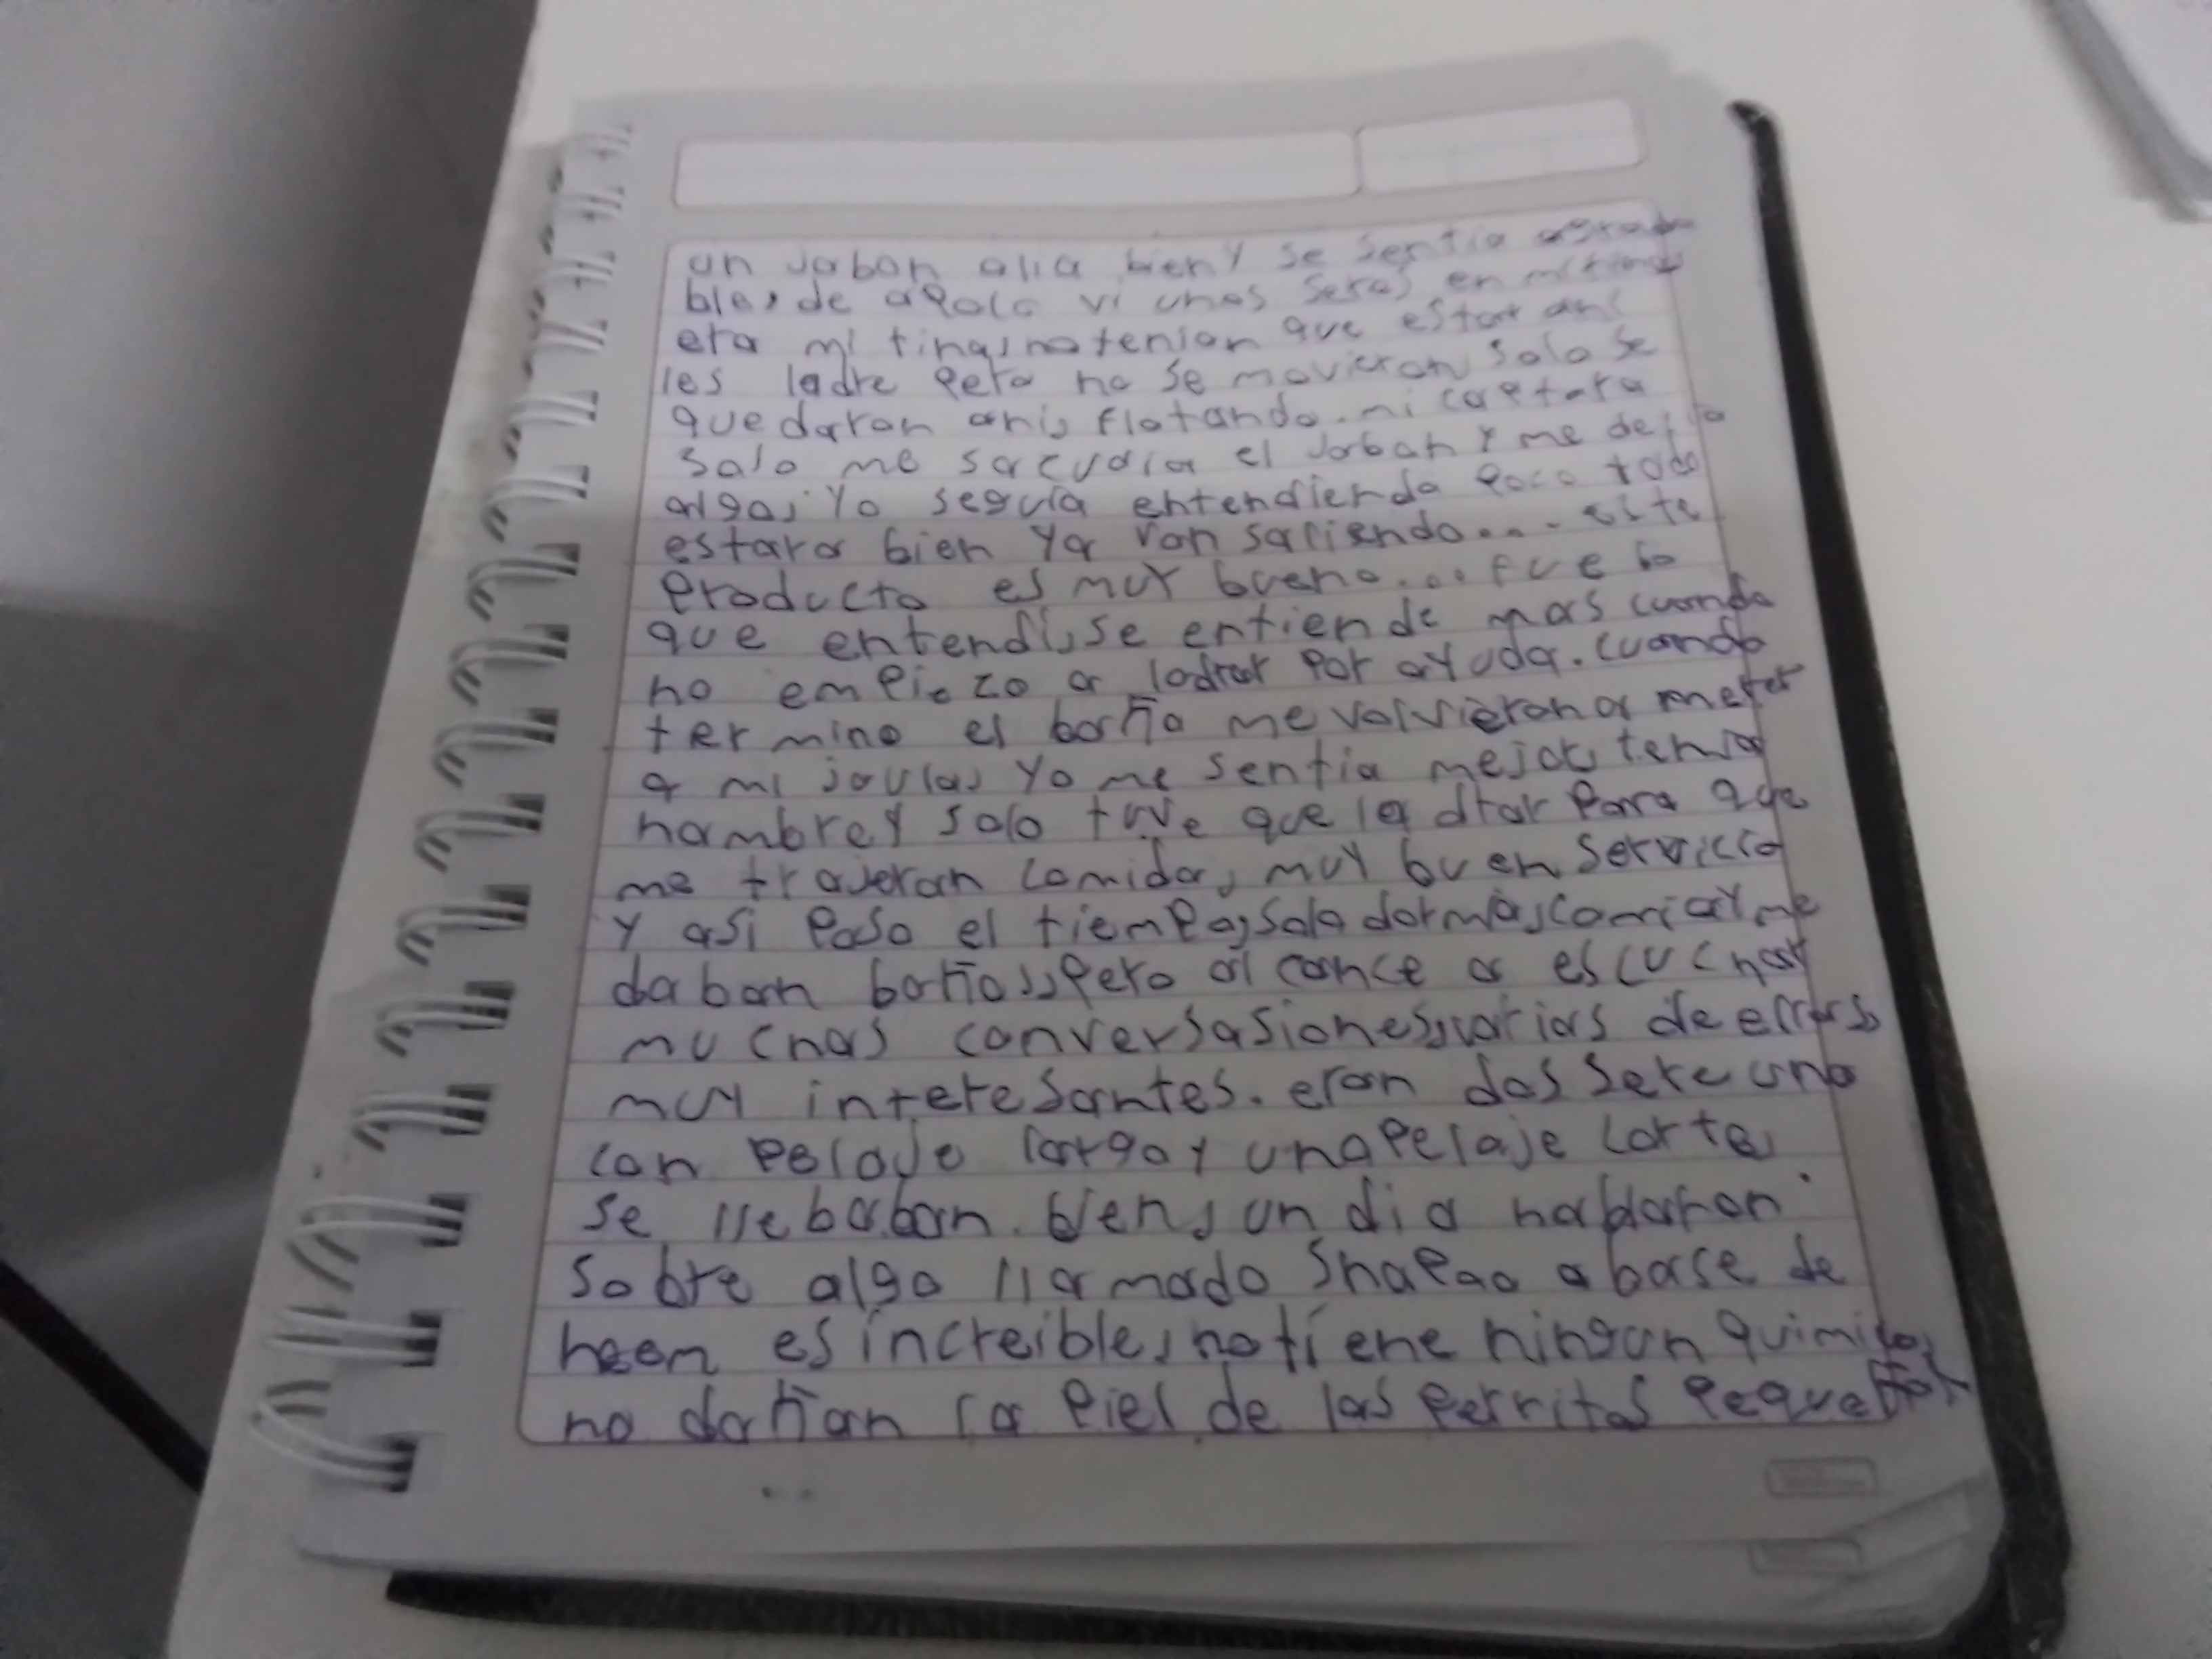 un jabon alia bien y se sentia agrada
ble, de a poco vi unos seres en mi tina,
era mi tina, no tenian que estar ahi
les ladre pero no se movieron, solo se
quedaron ahi, flotando. mi captora
solo me sacudia el jabon y me decia
algo, yo seguia entendiendo poco todo
estara bien ya van saliendo... este
producto es muy bueno... fue lo
que entendi, se entiende mas cuando
no empiezo a ladrar por ayuda. cuando
termino el baño me volvieron a meter
a mi jaula, yo me sentia mejor, tenia
hambre y solo tuve que ladrar para que
me trajeran comida, muy buen servicio
y asi paso el tiempo, solo dormia, comia y me
daban baños, pero alcance a escuchar
muchas conversasiones, varias de ellas
muy interesantes. eran dos sere uno
con pelaje largo y uno pelaje corto,
se llebaban bien, un dia hablaron
sobre algo llamado Shapoo a base de
neem es increible, no tiene ningun quimico,
no dañan la piel de los perritos pequeños